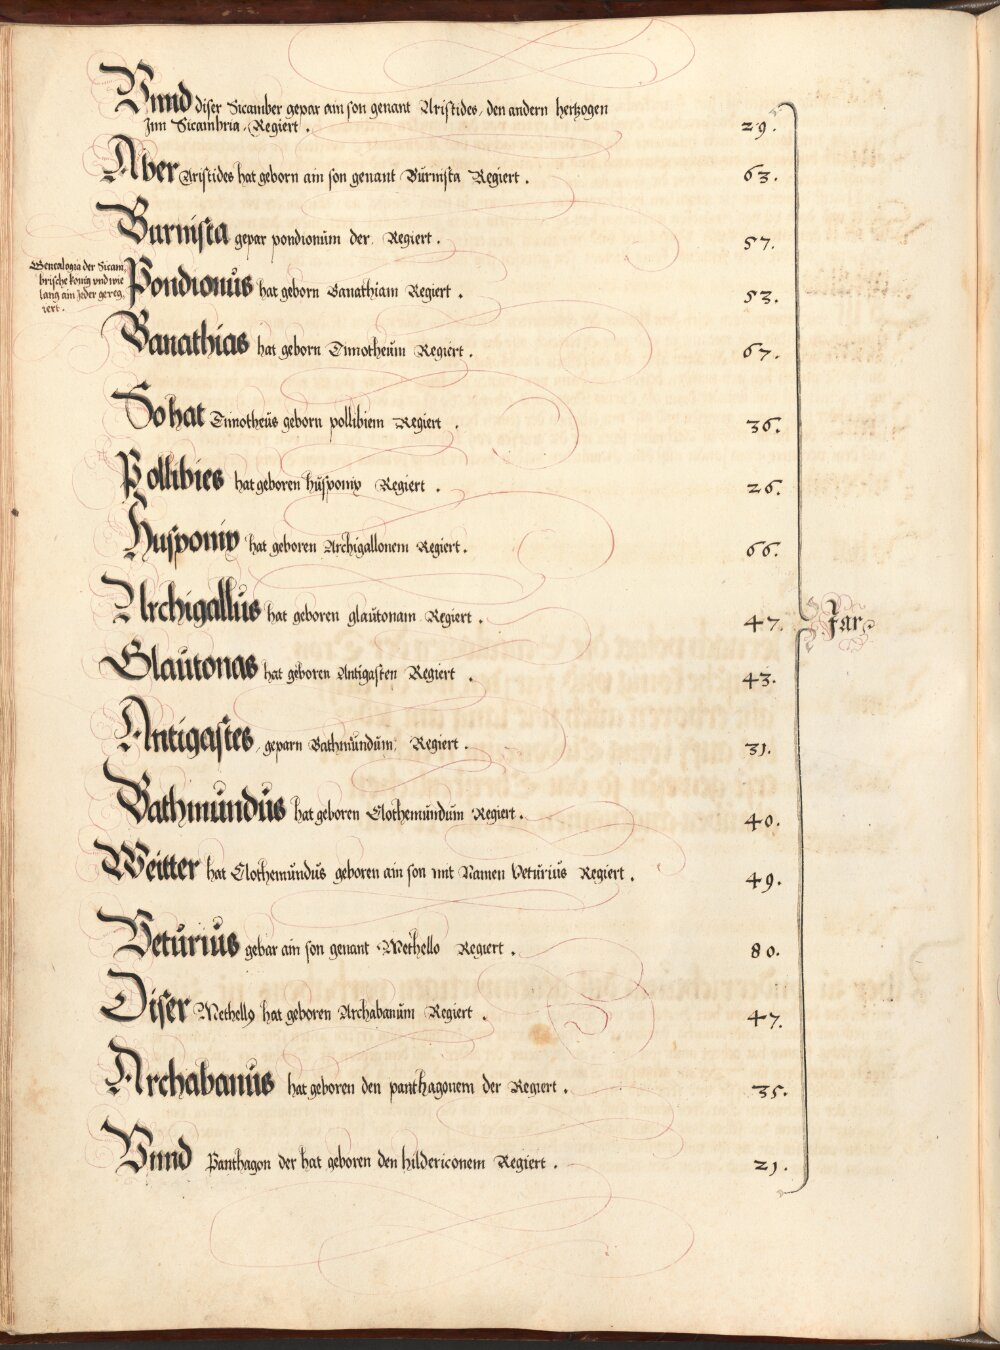 Vnnd diser Sicamber gepar ain son genant Aristides, den andern hertzogen
Jnn Sicambria, Regiert . 29.
Aber Aristides hat geborn ain son genant Burnista Regiert . 63.
Burnista gepar pondionum der Regiert . 57.
Genealogia der Sicam,
brische konig vnd wie
lang ain Jeder gereg,
iert .
Pondionus hat geborn Banathiam Regiert . 53.
Banathias hat geborn Timotheum Regiert . 67.
So hat Timotheus geborn pollibiem Regiert . 36.
Pollibies hat geboren husponip Regiert . 26.
Husponip hat geboren Archigallonem Regiert . 66.
Archigallus hat geboren glautonam Regiert . 47.
Jar
Glautonas hat geboren Antigasten Regiert . 43.
Antigastes, geparn Bathmundum, Regiert . 31.
Bathmundus hat geboren Clothemundum Regiert . 40.
Weitter hat Clothemundus geboren ain son mit Namen Veturius Regiert . 49.
Veturius gebar ain son genant Methello Regiert . 80.
Diser Methello hat geboren Archabanum Regiert . 47.
Archabanus hat geboren den panthagonem der Regiert . 35.
Vnnd Panthagon der hat geboren den hildericonem Regiert . 21.